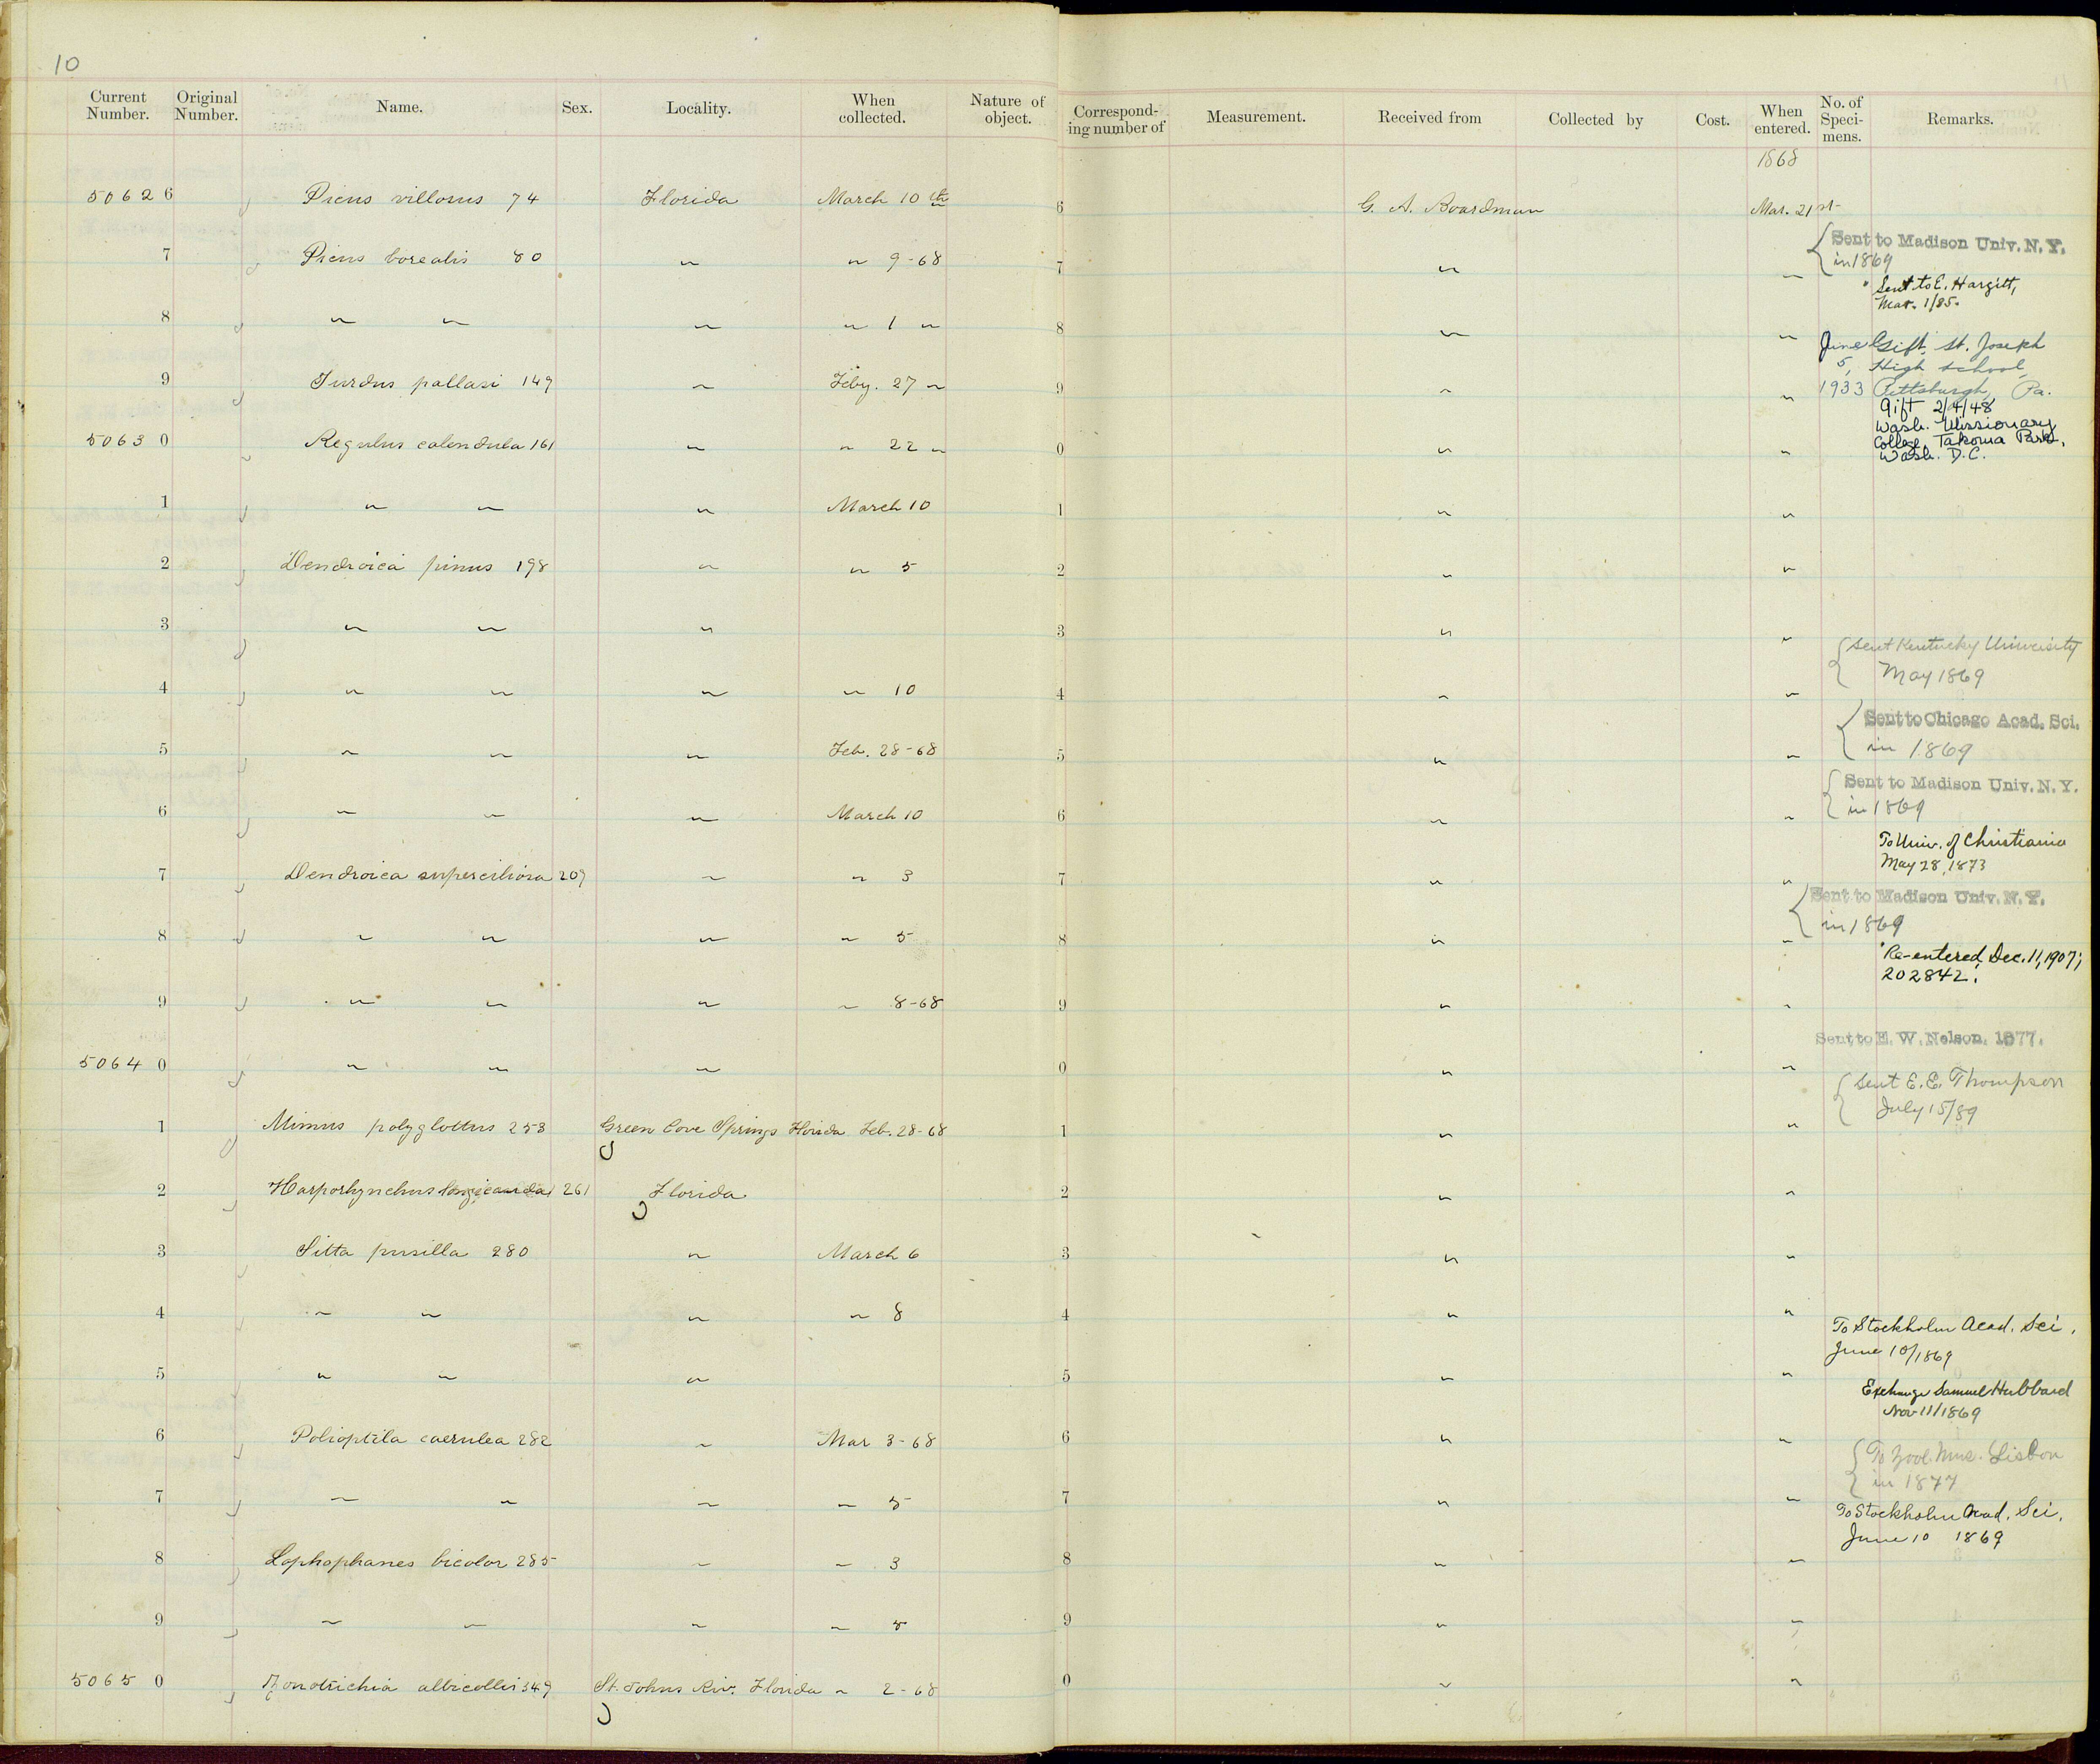 10
Current Number. Original Number. Name. Sex. Locality. When collected. Nature of object. Corresponding number of Measurement. Received from Collected by Cost. When entered. No. of Specimens. Remarks.
1868
5062 6 Picus villosus 74 Florida March 10th 6 G. A. Boardman Mar. 21st
7 Picus borealis 80 " " 9-68 7 " " Sent to Madison Univ. N. Y.
in 1869
8 " " " " 1 " 8 " " Sent to E. Hargitt,
Mar. 1/85.
9 Turdus pallasi 149 " Feby. 27 " 9 " " June Gift. St. Joseph
5, High School,
1933 Pittsburgh, Pa.
5063 0 Regulus calendula 161 " " 22 " 0 " " Gift 2/4/48
Wash. Missionary
College, Takoma Park,
Wash. D.C.
1 " " " March 10 1 " "
2 Dendroica pinus 198 " " 5 2 " "
3 " " " 3 " " Sent Kentucky University
May 1869
4 " " " " 10 4 " " Sent to Chicago Acad. Sci.
in 1869
5 " " " Feb. 28-68 5 " " Sent to Madison Univ. N. Y.
in 1869
6 " " " March 10 6 " " To Univ. of Christiania
May 28, 1873
7 Dendroica superciliosa 209 " " 3 7 " " Sent to Madison Univ. N. Y.
in 1869
8 " " " " 5 8 " " Re-entered Dec. 11, 1907;
202842.
9 " " " " 8-68 9 " "
5064 0 " " " 0 " " Sent to E. W. Nelson. 1877.
Sent E. E. Thompson
July 15/89
1 Mimus polyglottus 253 Green Cove Springs Florida Feb. 28-68 1 " "
2 Harporhynchus longicauda 261 Florida 2 " "
3 Sitta pusilla 280 " March 6 3 " "
4 " " " " 8 4 " " To Stockholm Acad. Sci.
June 10/1869
5 " " " 5 " " Exchange Samuel Hubbard
Nov 11/1869
6 Polioptila caerulea 282 " Mar 3-68 6 " " To Zool. Mus. Lisbon
in 1877
7 " " " " 5 7 " " To Stockholm Acad. Sci.
June 10 1869
8 Lophophanes bicolor 285 " " 3 8 " "
9 " " " " 5 9 " "
5065 0 Zonotrichia albicollis 349 St. Johns Riv. Florida " 2-68 0 " "